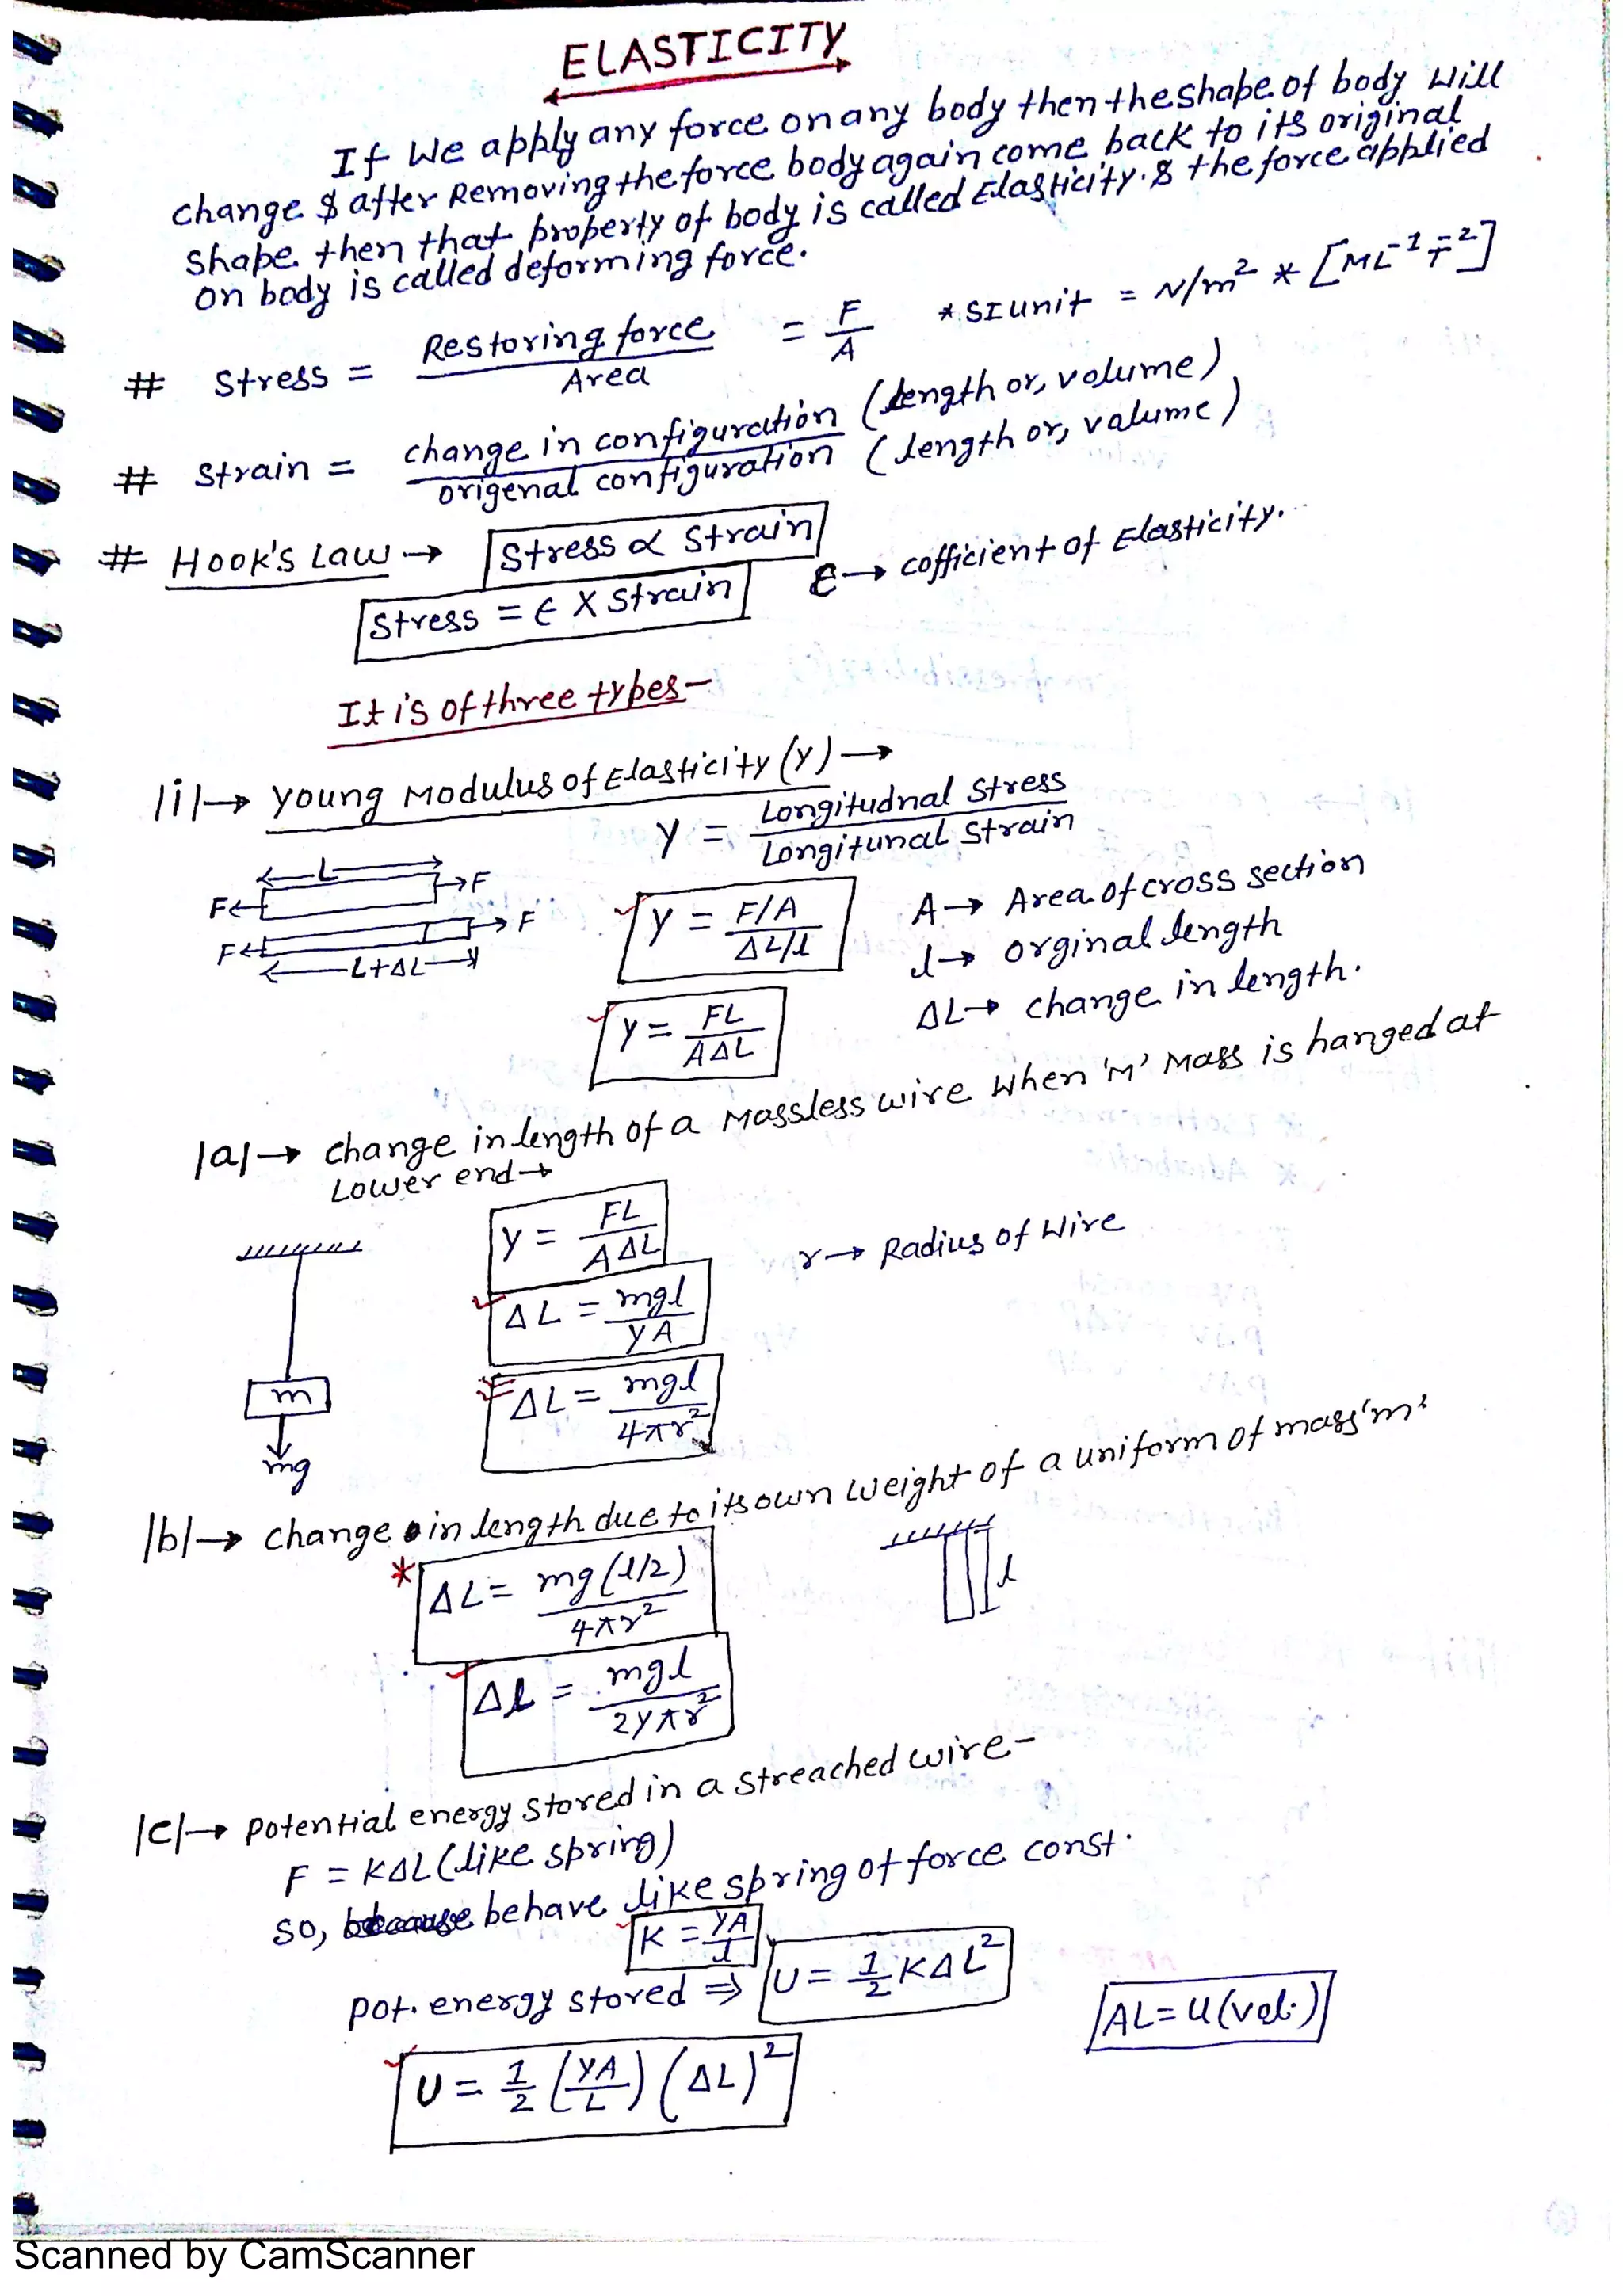 ELASTICITY
If We apply any force on any body then the shape of body will
change & after Removing the force body again come back to its original
shape then that property of body is called Elasticity. & the force applied
on body is called deforming force.
# Stress = Restoring force / Area = F/A * SI unit = N/m² * [ML⁻¹T⁻²]
# Strain = change in configuration (length or, volume) / origenal configuration (length or, valume)
# Hook's Law → Stress ∝ Strain
Stress = E X Strain E → cofficient of Elasticity.
It is of three types-
|i|→ Young Modulus of Elasticity (Y) →
Y = Longitudnal Stress / Longitunal Strain
L
F F
F F
L+ΔL
Y = F/A / ΔL/l
A → Area of cross section
l → orginal length
Y = FL / AΔL
ΔL → change in length.
|a|→ change in length of a Massless wire when 'M' Mass is hanged at
Lower end →
Y = FL / AΔL
r → Radius of Wire
ΔL = mgl / YA
m
mg
ΔL = mgl / 4πr²
|b|→ change in length due to its own weight of a uniform of mass 'm'
ΔL = mg(l/2) / 4πr²
l
Δl = mgl / 2Yπr²
|c|→ Potential energy stored in a streached wire-
F = KΔL (like spring)
so, because behave like spring of force const.
K = YA / l
pot. energy stored ⇒ U = 1/2 KΔL²
AL = u (vol.)
U = 1/2 (YA/L) (ΔL)²
Scanned by CamScanner